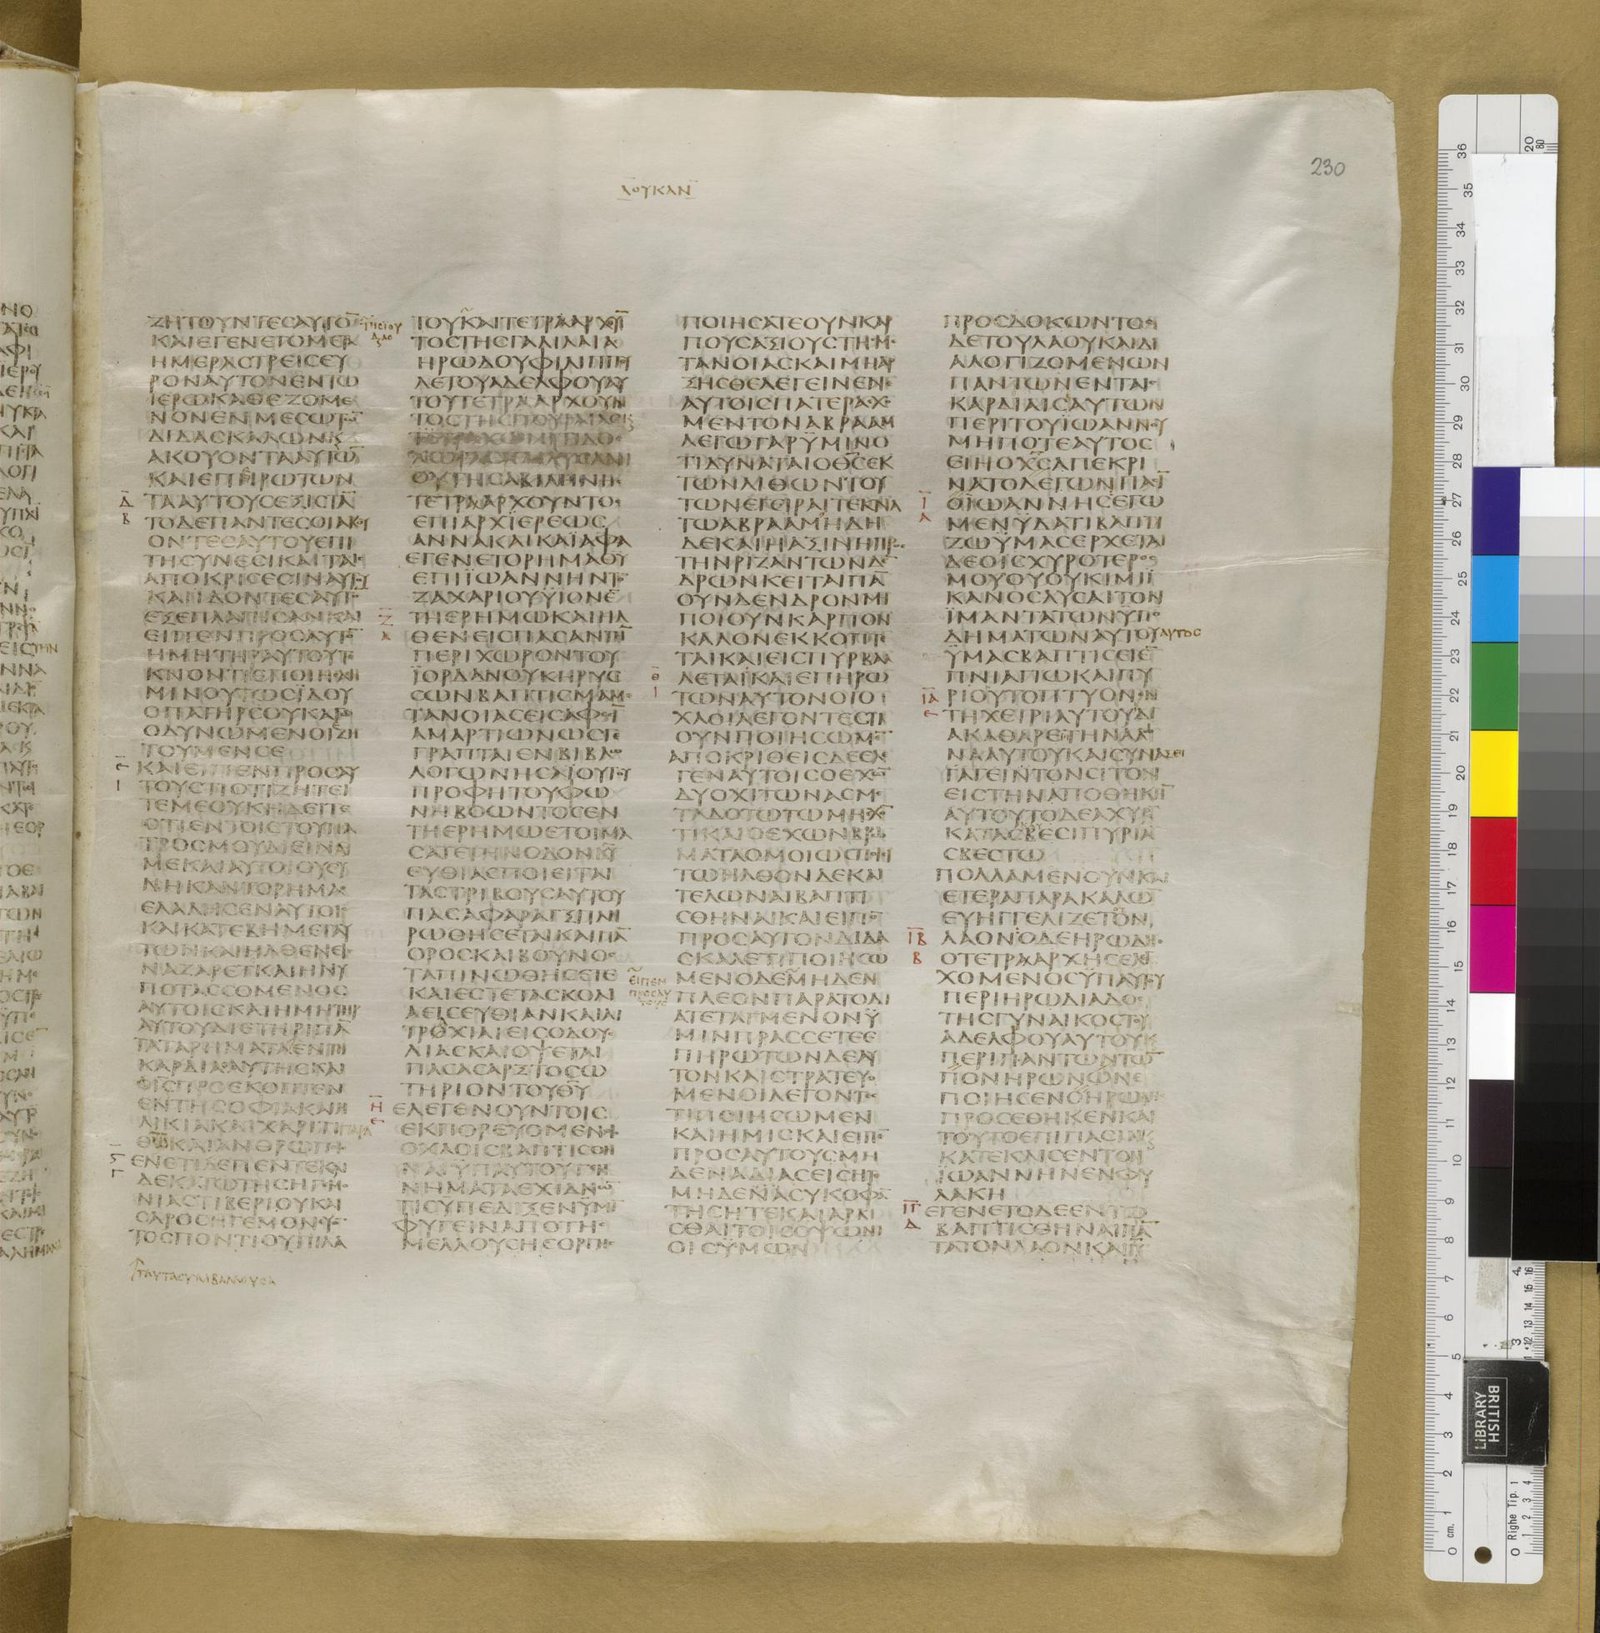 230
ΛΟΥΚΑΝ
ΖΗΤΟΥΝΤΕΣΑΥΤΟ
ΚΑΙΕΓΕΝΕΤΟΜΕΤΑ
ΗΜΕΡΑΣΤΡΕΙΣΕΥ
ΡΟΝΑΥΤΟΝΕΝΤΩ
ΙΕΡΩΚΑΘΕΖΟΜΕ
ΝΟΝΕΝΜΕΣΩΤΩ
ΔΙΔΑΣΚΑΛΩΝΚ
ΑΚΟΥΟΝΤΑΑΥΤΩ
ΚΑΙΕΠΗΡΩΤΩΝ
ΤΑΑΥΤΟΥΣΕΞΙΣΤΑ
ΤΟΔΕΠΑΝΤΕΣΟΙΑΚΟΥ
ΟΝΤΕΣΑΥΤΟΥΕΠΙ
ΤΗΣΥΝΕΣΙΚΑΙΤΑΙ
ΑΠΟΚΡΙΣΕΣΙΝΑΥΤΟΥ
ΚΑΙΙΔΟΝΤΕΣΑΥΤ
ΕΞΕΠΛΑΓΗΣΑΝΚΑΙ
ΕΙΠΕΝΠΡΟΣΑΥΤ
ΗΜΗΤΗΡΑΥΤΟΥΤ
ΚΝΟΝΤΙΕΠΟΙΗΣΑΣΗ
ΜΙΝΟΥΤΩΣΪΔΟΥ
ΟΠΑΤΗΡΣΟΥΚΑΓΩ
ΟΔΥΝΩΜΕΝΟΙΖΗ
ΤΟΥΜΕΝΣΕ
ΚΑΙΕΙΠΕΝΠΡΟΣΑΥ
ΤΟΥΣΤΙΟΤΙΖΗΤΕΙ
ΤΕΜΕΟΥΚΗΔΕΙΤΕ
ΟΤΙΕΝΤΟΙΣΤΟΥΠΑ
ΤΡΟΣΜΟΥΔΙΕΙΝΑΙ
ΜΕΚΑΙΑΥΤΟΙΟΥΣΥ
ΝΗΚΑΝΤΟΡΗΜΑ
ΕΛΑΛΗΣΕΝΑΥΤΟΙΣ
ΚΑΙΚΑΤΕΒΗΜΕΤΑΥ
ΤΩΝΚΑΙΗΛΘΕΝΕΙΣ
ΝΑΖΑΡΕΤΚΑΙΗΝΥ
ΠΟΤΑΣΣΟΜΕΝΟΣ
ΑΥΤΟΙΣΚΑΙΗΜΗΤΗΡ
ΑΥΤΟΥΔΙΕΤΗΡΙΠΑ
ΤΑΤΑΡΗΜΑΤΑΕΝΤΗ
ΚΑΡΔΙΑΑΥΤΗΣΚΑΙ
ΙΣΠΡΟΕΚΟΠΤΕΝ
ΕΝΤΗΣΟΦΙΑΚΑΙΗ
ΛΙΚΙΑΚΑΙΧΑΡΙΤΙΠΑΡΑ
ΘΩΚΑΙΑΝΘΡΩΠΟΙΣ
ΕΝΕΤΙΔΕΠΕΝΤΕΚΑΙ
ΔΕΚΑΤΩΤΗΣΗΓΕΜ
ΝΙΑΣΤΙΒΕΡΙΟΥΚΑΙ
ΣΑΡΟΣΗΓΕΜΟΝΥ
ΤΟΣΠΟΝΤΙΟΥΠΙΛΑ
ΤΟΥΚΑΙΤΕΤΡΑΑΡΧΟΥ
ΤΟΣΤΗΣΓΑΛΙΛΑΙΑ
ΗΡΩΔΟΥΦΙΛΙΠΠΟΥ
ΔΕΤΟΥΑΔΕΛΦΟΥΑΥ
ΤΟΥΤΕΤΡΑΑΡΧΟΥΝ
ΤΟΣΤΗΣΙΤΟΥΡΑΙΑΣΚΣ
ΟΥΤΗΣΑΒΙΛΗΝΗΣ
ΤΕΤΡΑΑΡΧΟΥΝΤΟΣ
ΕΠΙΑΡΧΪΕΡΕΩΣ
ΑΝΝΑΚΑΙΚΑΪΑΦΑ
ΕΓΕΝΕΤΟΡΗΜΑΘΥ
ΕΠΙΪΩΑΝΝΗΝΤ
ΖΑΧΑΡΙΟΥΫΙΟΝΕ
ΤΗΕΡΗΜΩΚΑΙΗΛ
ΘΕΝΕΙΣΠΑΣΑΝΤΗ
ΠΕΡΙΧΩΡΟΝΤΟΥ
ΪΟΡΔΑΝΟΥΚΗΡΥΣ
ΣΩΝΒΑΠΤΙΣΜΑΜΕ
ΤΑΝΟΙΑΣΕΙΣΑΦΕΣΙ
ΑΜΑΡΤΙΩΝΩΣΓΕ
ΓΡΑΠΤΑΙΕΝΒΙΒΛΩ
ΛΟΓΩΝΗΣΑΪΟΥΤΟΥ
ΠΡΟΦΗΤΟΥΦΩ
ΝΗΒΟΩΝΤΟΣΕΝ
ΤΗΕΡΗΜΩΕΤΟΙΜΑ
ΣΑΤΕΤΗΝΟΔΟΝΚΥ
ΕΥΘΙΑΣΠΟΙΕΙΤΑΙ
ΤΑΣΤΡΙΒΟΥΣΑΥΤΟΥ
ΠΑΣΑΦΑΡΑΓΞΠΛΗ
ΡΩΘΗΣΕΤΑΙΚΑΙΠΑ
ΟΡΟΣΚΑΙΒΟΥΝΟΣ
ΤΑΠΙΝΩΘΗΣΕΤΕ
ΚΑΙΕΣΤΕΤΑΣΚΟΛΙ
ΑΕΙΣΕΥΘΙΑΝΚΑΙΑΙ
ΤΡΟΧΙΑΙΕΙΣΟΔΟΥΣ
ΛΙΑΣΚΑΙΟΨΕΤΑΙ
ΠΑΣΑΣΑΡΞΤΟΣΩ
ΤΗΡΙΟΝΤΟΥΘΥ
ΕΛΕΓΕΝΟΥΝΤΟΙΣ
ΕΚΠΟΡΕΥΟΜΕΝΟΙΣ
ΟΧΛΟΙΣΒΑΠΤΙΣΘΗ
ΝΑΙΥΠΑΥΤΟΥΓΕΝ
ΝΗΜΑΤΑΕΧΙΔΝΩ
ΤΙΣΥΠΕΔΙΞΕΝΥΜΙ
ΦΥΓΕΙΝΑΠΟΤΗΣ
ΜΕΛΛΟΥΣΗΣΟΡΓΗΣ
ΠΟΙΗΣΑΤΕΟΥΝΚΑΡ
ΠΟΥΣΑΞΙΟΥΣΤΗΣΜΕ
ΤΑΝΟΙΑΣΚΑΙΜΗΑΡ
ΞΗΣΘΕΛΕΓΕΙΝΕΝΕ
ΑΥΤΟΙΣΠΑΤΕΡΑΕΧΟ
ΜΕΝΤΟΝΑΒΡΑΑΜ
ΛΕΓΩΓΑΡΫΜΙΝΟ
ΤΙΔΥΝΑΤΑΙΟΘΣΕΚ
ΤΩΝΛΙΘΩΝΤΟΥ
ΤΩΝΕΓΕΙΡΑΙΤΕΚΝΑ
ΤΩΑΒΡΑΑΜΗΔΗ
ΔΕΚΑΙΗΑΞΙΝΗΠΡΟΣ
ΤΗΝΡΙΖΑΝΤΩΝΔΕ
ΔΡΩΝΚΕΙΤΑΙΠΑ
ΟΥΝΔΕΝΔΡΟΝΜΗ
ΠΟΙΟΥΝΚΑΡΠΟΝ
ΚΑΛΟΝΕΚΚΟΠΤΕ
ΤΑΙΚΑΙΕΙΣΠΥΡΒΑΛ
ΛΕΤΑΙΚΑΙΕΠΗΡΩ
ΤΩΝΑΥΤΟΝΟΙΟ
ΧΛΟΙΛΕΓΟΝΤΕΣΤΙ
ΟΥΝΠΟΙΗΣΩΜΕ
ΑΠΟΚΡΙΘΕΙΣΔΕΕΛΕ
ΓΕΝΑΥΤΟΙΣΟΕΧΩ
ΔΥΟΧΙΤΩΝΑΣΜΕ
ΤΑΔΟΤΩΤΩΜΗΧ
ΤΙΚΑΙΟΕΧΩΝΒΡΩ
ΜΑΤΑΟΜΟΙΩΣΠΟΙ
ΤΩΗΛΘΟΝΔΕΚΑΙ
ΤΕΛΩΝΑΙΒΑΠΤΙ
ΣΘΗΝΑΙΚΑΙΕΙΠ
ΠΡΟΣΑΥΤΟΝΔΙΔΑ
ΣΚΑΛΕΤΙΠΟΙΗΣΩ
ΜΕΝΟΔΕΜΗΔΕΝ
ΠΛΕΟΝΠΑΡΑΤΟΔΙ
ΑΤΕΤΑΓΜΕΝΟΝΫ
ΜΙΝΠΡΑΣΣΕΤΕΕ
ΠΗΡΩΤΩΝΔΕΑΥ
ΤΟΝΚΑΙΣΤΡΑΤΕΥΟ
ΜΕΝΟΙΛΕΓΟΝΤΕΣ
ΤΙΠΟΙΗΣΩΜΕΝ
ΚΑΙΗΜΙΣΚΑΙΕΙΠΕ
ΠΡΟΣΑΥΤΟΥΣΜΗ
ΔΕΝΑΔΙΑΣΕΙΣΗΤΕ
ΜΗΔΕΝΑΣΥΚΟΦΑ
ΤΗΣΗΤΕΚΑΙΑΡΚΙ
ΣΘΑΙΤΟΙΣΟΨΩΝΙ
ΟΙΣΫΜΩΝ
ΠΡΟΣΔΟΚΩΝΤΟΣ
ΔΕΤΟΥΛΑΟΥΚΑΙΔΙ
ΑΛΟΓΙΖΟΜΕΝΩΝ
ΠΑΝΤΩΝΕΝΤΑΙΣ
ΚΑΡΔΙΑΙΣΑΥΤΩΝ
ΠΕΡΙΤΟΥΪΩΑΝΝΟΥ
ΜΗΠΟΤΕΑΥΤΟΣ
ΕΙΗΟΧΣΑΠΕΚΡΙ
ΝΑΤΟΛΕΓΩΝΠΑΣΙ
ΟΪΩΑΝΝΗΣΕΓΩ
ΜΕΝΥΔΑΤΙΒΑΠΤΙ
ΖΩΥΜΑΣΕΡΧΕΤΑΙ
ΔΕΟΙΣΧΥΡΟΤΕΡΟΣ
ΜΟΥΟΥΟΥΚΙΜΙΪ
ΚΑΝΟΣΛΥΣΑΙΤΟΝ
ΪΜΑΝΤΑΤΩΝΥΠΟ
ΔΗΜΑΤΩΝΑΥΤΟΥΑΥΤΟΣ
ΫΜΑΣΒΑΠΤΙΣΕΙΕ
ΠΝΙΑΓΙΩΚΑΙΠΥ
ΡΙΟΥΤΟΠΤΥΟΝΕΝ
ΤΗΧΕΙΡΙΑΥΤΟΥΔΙ
ΑΚΑΘΑΡΕΤΗΝΑΛΩ
ΝΑΑΥΤΟΥΚΑΙΣΥΝΑΞΕΙ
ΓΑΓΕΙΝΤΟΝΣΙΤΟΝ
ΕΙΣΤΗΝΑΠΟΘΗΚΗ
ΑΥΤΟΥΤΟΔΕΑΧΥΡ
ΚΑΤΑΣΒΕΣΙΠΥΡΙΑ
ΣΒΕΣΤΩ
ΠΟΛΛΑΜΕΝΟΥΝΚΑΙ
ΕΤΕΡΑΠΑΡΑΚΑΛΩ
ΕΥΗΓΓΕΛΙΖΕΤΟΝ
ΛΑΟΝΟΔΕΗΡΩΔΗΣ
ΟΤΕΤΡΑΑΡΧΗΣΕΛΕ
ΧΟΜΕΝΟΣΫΠΑΥΤΟΥ
ΠΕΡΙΗΡΩΔΙΑΔΟΣ
ΤΗΣΓΥΝΑΙΚΟΣΤΟΥ
ΑΔΕΛΦΟΥΑΥΤΟΥΚ
ΠΕΡΙΠΑΝΤΩΝΤΩ
ΠΟΝΗΡΩΝΩΝΕ
ΠΟΙΗΣΕΝΟΗΡΩΔΗΣ
ΠΡΟΣΕΘΗΚΕΝΚΑΙ
ΤΟΥΤΟΕΠΙΠΑΣΙΝΚ
ΚΑΤΕΚΛΙΣΕΝΤΟΝ
ΪΩΑΝΝΗΝΕΝΦΥ
ΛΑΚΗ
ΕΓΕΝΕΤΟΔΕΕΝΤΩ
ΒΑΠΤΙΣΘΗΝΑΙΠΑ
ΤΑΤΟΝΛΑΟΝΚΑΙ